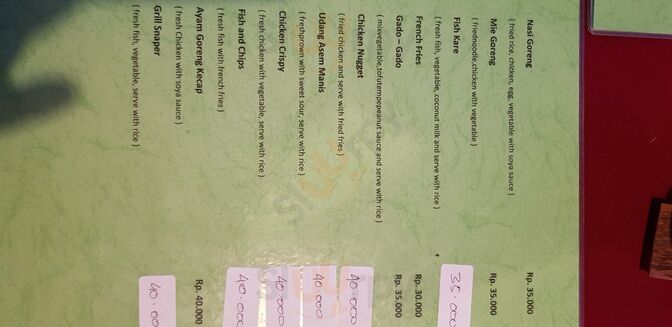 Nasi Goreng Rp. 35.000
( fried rice, chicken, egg, vegetable with soya sauce )
Mie Goreng Rp. 35.000
( friednoodle,chicken with vegetable )
Fish Kare 35.000
( fresh fish, vegetable, coconut milk and serve with rice )
French Fries Rp. 30.000
Gado – Gado Rp. 35.000
( mixvegetable,tofutempepeanut sauce and serve with rice )
Chicken Nugget 40.000
( fried chicken and serve with fried fries )
Udang Asem Manis 40.000
( freshprown with sweet sour, serve with rice )
Chicken Crispy 40.000
( fresh chicken with vegetable, serve with rice )
Fish and Chips 40.000
( fresh fish with french fries )
Ayam Goreng Kecap Rp. 40.000
( fresh Chicken with soya sauce )
Grill Snaper 40.00
( fresh fish, vegetable, serve with rice )